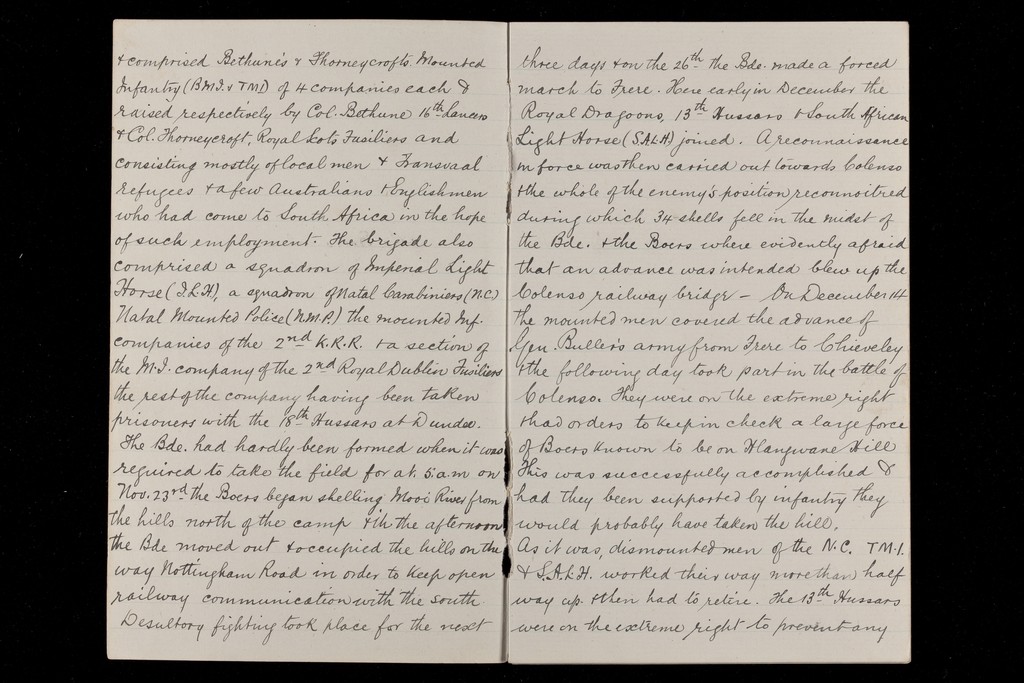 & comprised Bethune's & Thorneycrofts Mounted
Infantry (B.M.I. & TMI) of 4 companies each &
raised respectively by Col. Bethune 16th Lancers
& Col. Thorneycroft, Royal Scots Fusiliers and
consisting mostly of local men & Transvaal
refugees & a few Australians & Englishmen
who had come to South Africa in the hope
of such employment. The brigade also
comprised a squadron of Imperial Light
Horse (I.L.H), a squadron of Natal Carabiniers (N.C.)
Natal Mounted Police (N.M.P.) the mounted Inf.
companies of the 2nd K.R.R. & a section of
the M.I. company of the 2nd Royal Dublin Fusiliers
the rest of the company having been taken
prisoners with the 18th Hussars at Dundee.
The Bde. had hardly been formed when it was
required to take the field for at 5 am on
Nov. 23rd the Boers began shelling Mooi River from
the hills north of the camp & in the afternoon
the Bde moved out & occupied the hills on the
way Nottingham Road in order to keep open
railway communication with the south.
Desultory fighting took place for the next
three days & on the 26th the Bde. made a forced
march to Frere. Here early in December the
Royal Dragoons, 13th Hussars & South African
Light Horse (S.A.L.H) joined. A reconnaissance
in force was then carried out towards Colenso
& the whole of the enemy's position reconnoitred
during which 34 shells fell in the midst of
the Bde. & the Boers where evidently afraid
that an advance was intended blew up the
Colenso railway bridge – On December 14
the mounted men covered the advance of
Gen. Buller's army from Frere to Chieveley
& the following day took part in the battle of
Colenso. They were on the extreme right
& had orders to keep in check a large force
of Boers known to be on Hlangwane Hill
This was successfully accomplished &
had they been supported by infantry they
would probably have taken the hill.
As it was, dismounted men of the N.C. T.M.I.
& S.A.L.H. worked their way more than half
way up & then had to retire. The 13th Hussars
were on the extreme right to prevent any